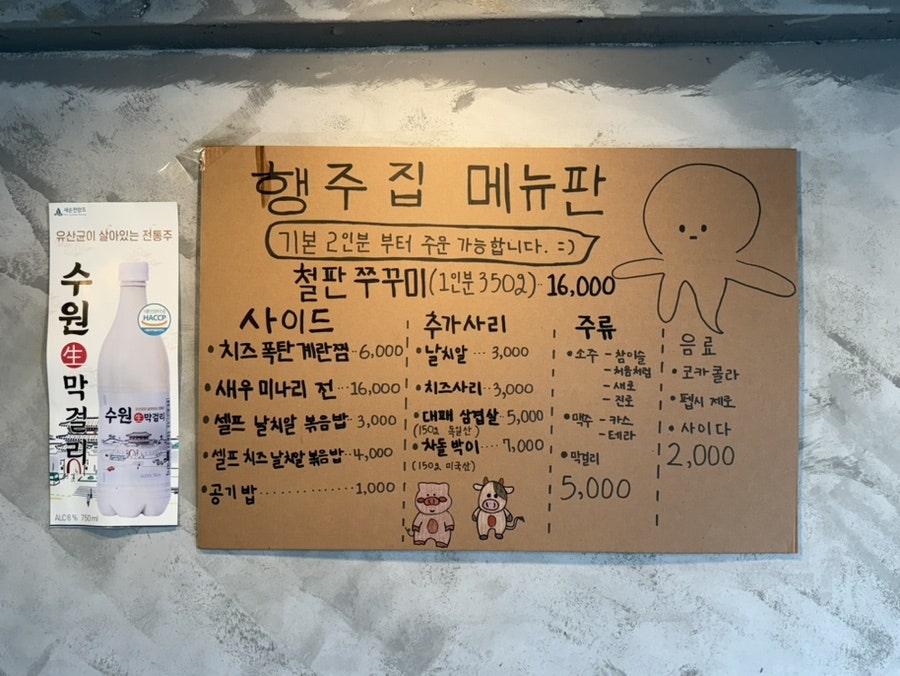 새순천양조
유산균이 살아있는 전통주
수원
生
막걸리
HACCP
수원 生 막걸리
ALC 6% 750ml
행주집 메뉴판
기본 2인분 부터 주문 가능합니다. =)
철판 쭈꾸미 (1인분 350g) .. 16,000
사이드
• 치즈 폭탄 계란찜 .. 6,000
• 새우 미나리 전 ... 16,000
• 셀프 날치알 볶음밥 .. 3,000
• 셀프 치즈 날치알 볶음밥 .. 4,000
• 공기밥 ............. 1,000
추가사리
• 날치알 ... 3,000
• 치즈사리 .. 3,000
• 대패 삼겹살 .. 5,000
(150g 독일산)
• 차돌박이 .... 7,000
(150g 미국산)
주류
• 소주 - 참이슬
- 처음처럼
- 새로
- 진로
• 맥주 - 카스
- 테라
• 막걸리
5,000
음료
• 코카콜라
• 펩시 제로
• 사이다
2,000